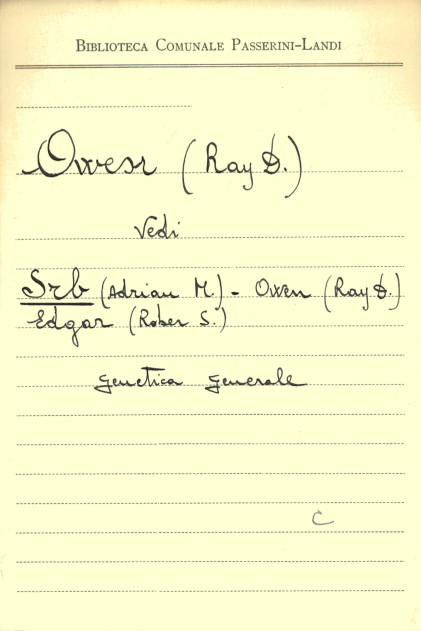 BIBLIOTECA COMUNALE PASSERINI-LANDI
Owen (Ray D.)
Vedi
Srb (Adrian M.) - Owen (Ray D.)
Edgar (Rober S.)
Genetica Generale
C